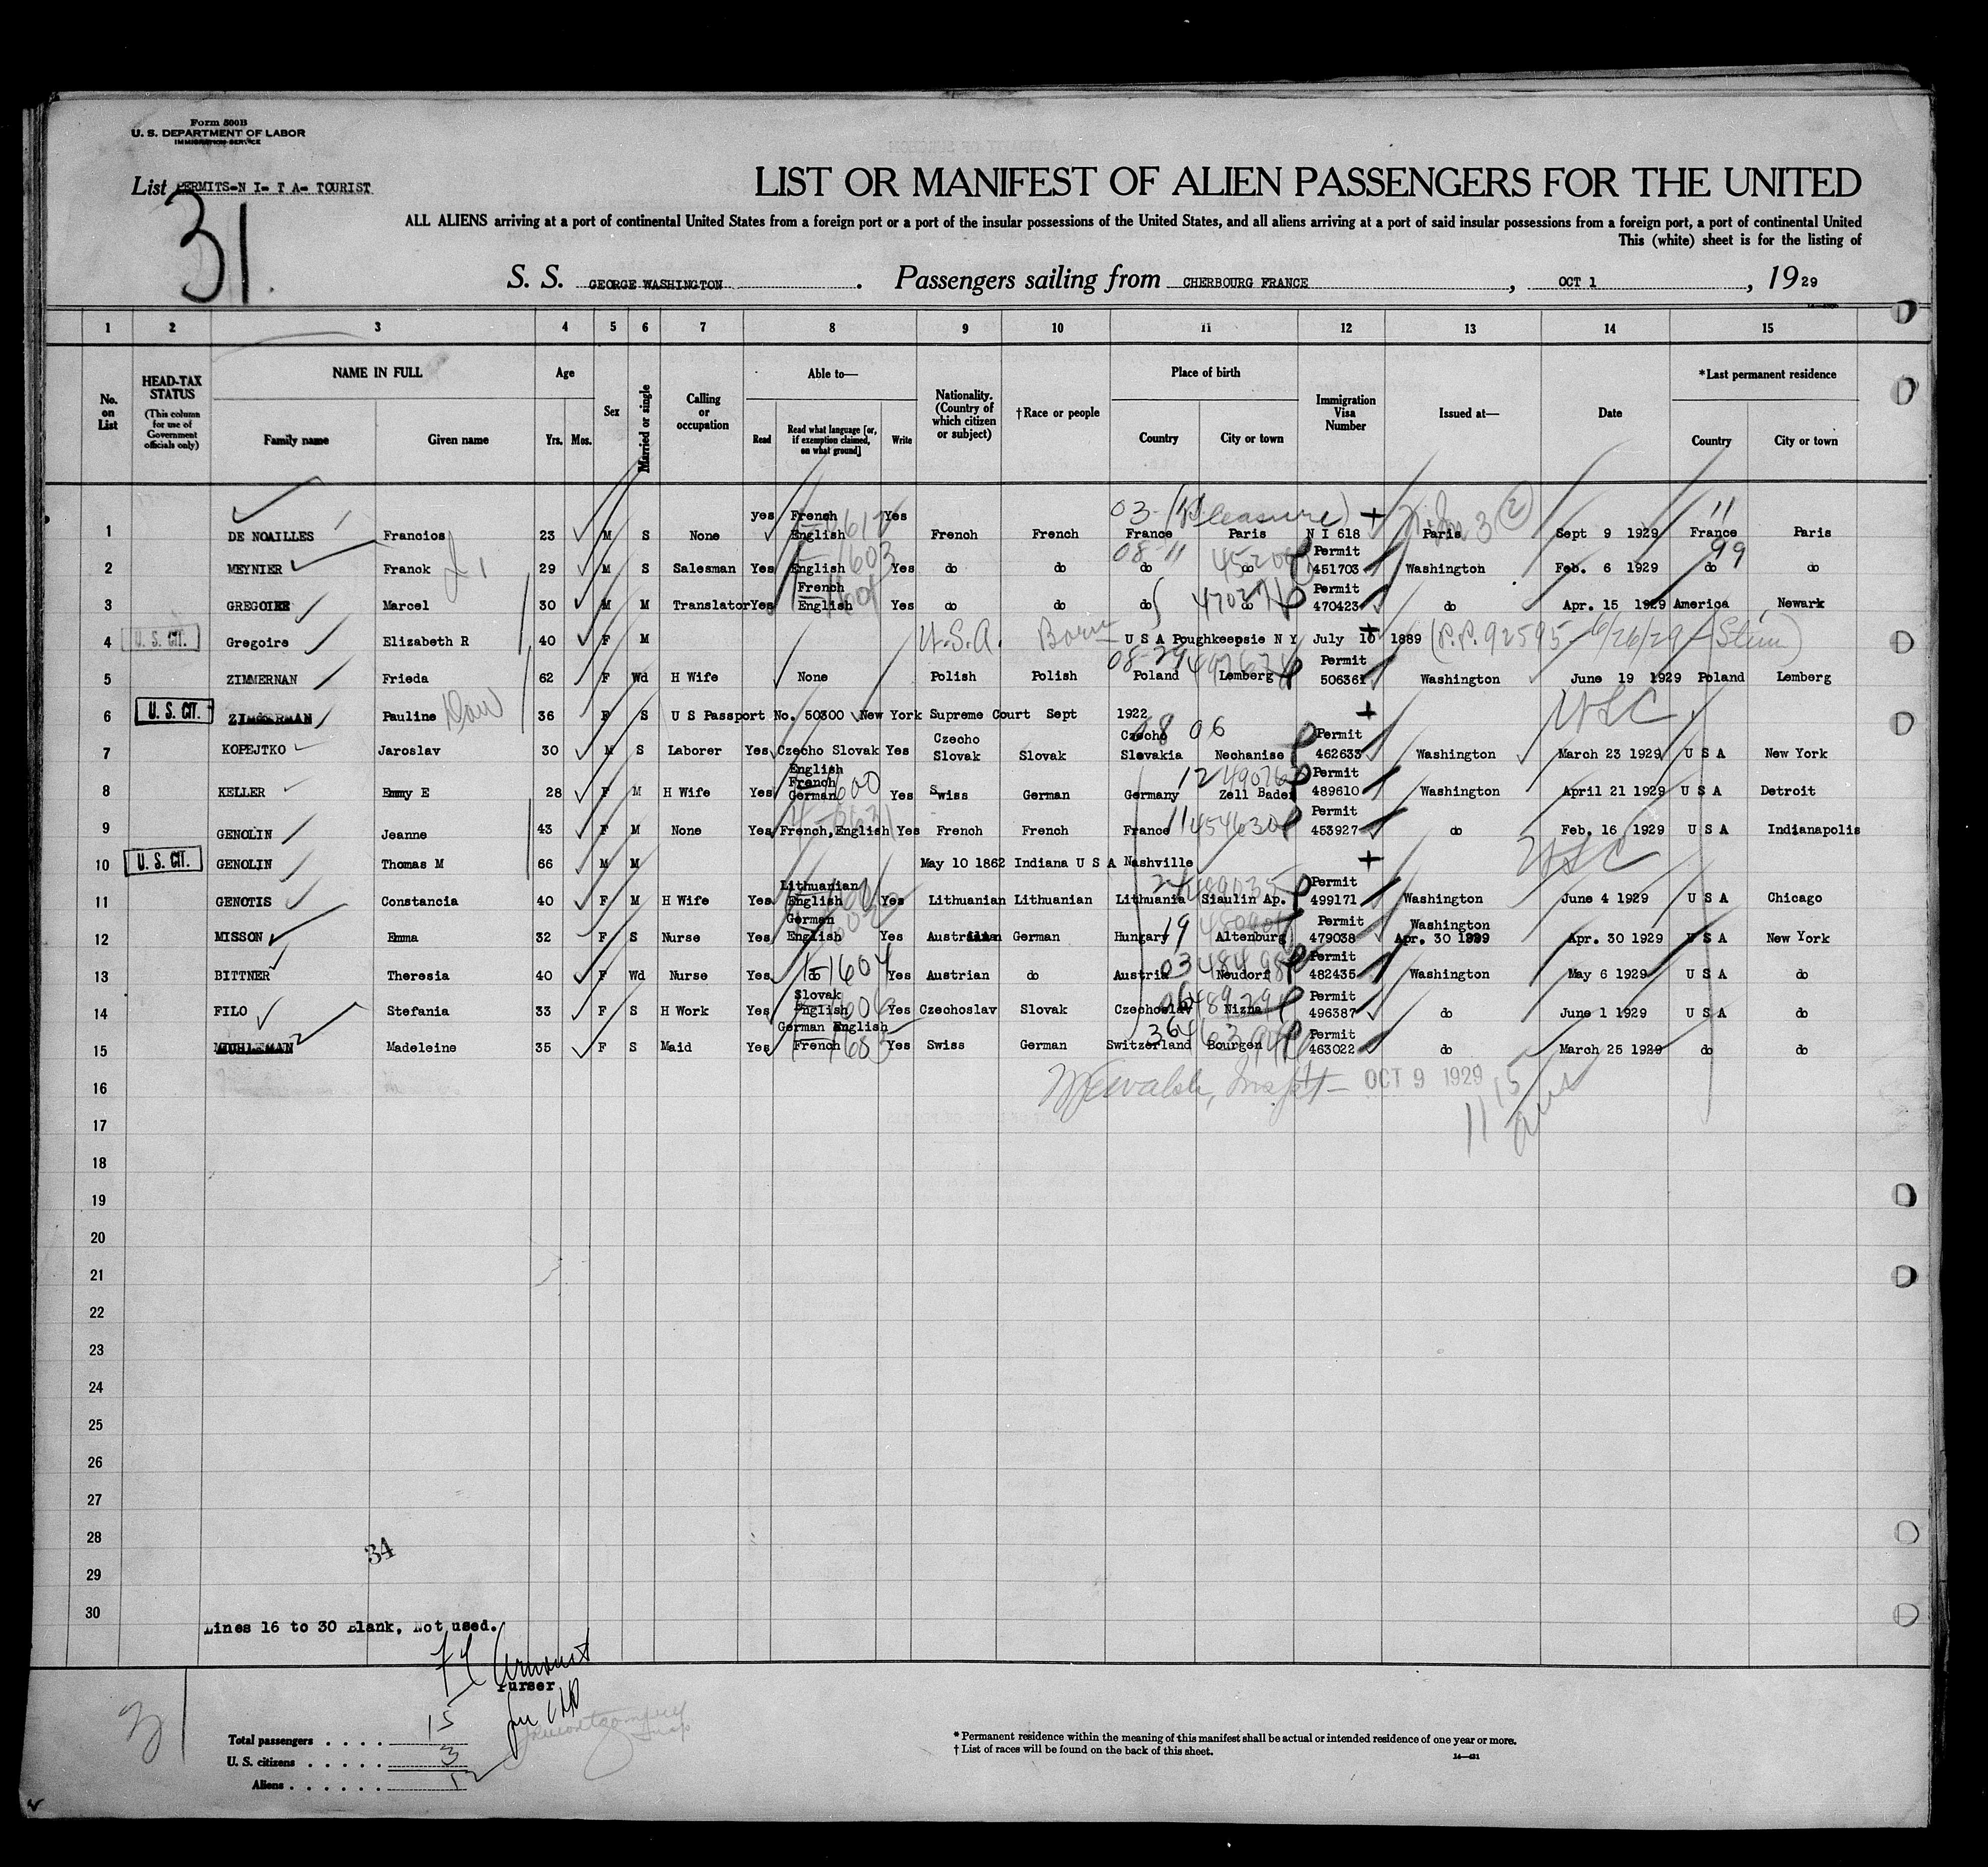 Form 500B
U. S. DEPARTMENT OF LABOR
IMMIGRATION SERVICE
List PERMITS-N I- T A- TOURIST
31
LIST OR MANIFEST OF ALIEN PASSENGERS FOR THE UNITED
ALL ALIENS arriving at a port of continental United States from a foreign port or a port of the insular possessions of the United States, and all aliens arriving at a port of said insular possessions from a foreign port, a port of continental United
This (white) sheet is for the listing of
S. S. GEORGE WASHINGTON. Passengers sailing from CHERBOURG FRANCE, OCT 1, 1929
1 2 3 4 5 6 7 8 9 10 11 12 13 14 15
No. on List
HEAD-TAX STATUS (This column for use of Government officials only)
NAME IN FULL Family name Given name
Age Yrs. Mos.
Sex
Married or single
Calling or occupation
Able to— Read Read what language [or, if exemption claimed, on what ground] Write
Nationality. (Country of which citizen or subject)
†Race or people
Place of birth Country City or town
Immigration Visa Number
Issued at—
Date
*Last permanent residence Country City or town
03-(Pleasure) + 11
1 DE NOAILLES Francios 23 M S None yes French English Yes French French France Paris N I 618 Paris Sept 9 1929 France Paris
08-11 99
2 MEYNIER Franck 29 M S Salesman Yes English Yes do do do do Permit 451703 Washington Feb. 6 1929 do do
3 GREGOIRE Marcel 30 M M Translator Yes French English Yes do do do do Permit 470423 do Apr. 15 1929 America Newark
4 U. S. CIT. Gregoire Elizabeth R 40 F M U.S.A. Born U S A Poughkeepsie N Y July 10 1889 (P.P. 92595 - 6/26/29 -
5 ZIMMERNAN Frieda 62 F Wd H Wife None Polish Polish Poland Lemberg Permit 506361 Washington June 19 1929 Poland Lemberg
6 U. S. CIT. ZIMMERMAN Pauline 36 F S U S Passport No. 50300 New York Supreme Court Sept 1922 + USC
08 06
7 KOPEJTKO Jaroslav 30 M S Laborer Yes Czecho Slovak Yes Czecho Slovak Slovak Czecho Slovakia Nechanise Permit 462633 Washington March 23 1929 U S A New York
8 KELLER Emmy E 28 F M H Wife Yes English French German Yes Swiss German Germany Zell Baden Permit 489610 Washington April 21 1929 U S A Detroit
9 GENOLIN Jeanne 43 F M None Yes French, English Yes French French France Permit 453927 do Feb. 16 1929 U S A Indianapolis
10 U. S. CIT. GENOLIN Thomas M 66 M M May 10 1862 Indiana U S A Nashville + USC
11 GENOTIS Constancia 40 F M H Wife Yes Lithuanian English Yes Lithuanian Lithuanian Lithuania Siaulin Ap. Permit 499171 Washington June 4 1929 U S A Chicago
12 MISSON Emma 32 F S Nurse Yes German English Yes Austrian German Hungary Altenburg Permit 479038 Washington Apr. 30 1929 Apr. 30 1929 U S A New York
13 BITTNER Theresia 40 F Wd Nurse Yes do Yes Austrian do Austria Neudorf Permit 482435 Washington May 6 1929 U S A do
14 FILO Stefania 33 F S H Work Yes Slovak English Yes Czechoslav Slovak Czechoslav Nizna Permit 496387 do June 1 1929 U S A do
15 MUHLEMAN Madeleine 35 F S Maid Yes German English French Yes Swiss German Switzerland Bourgen Permit 463022 do March 25 1929 do do
16 OCT 9 1929
17
18
19
20
21
22
23
24
25
26
27
28
34
29
30
Lines 16 to 30 Blank, Not used.
Purser
31
Total passengers . . . . 15
U. S. citizens . . . . . 3
Aliens . . . . . . 12
* Permanent residence within the meaning of this manifest shall be actual or intended residence of one year or more.
† List of races will be found on the back of this sheet.
14—421